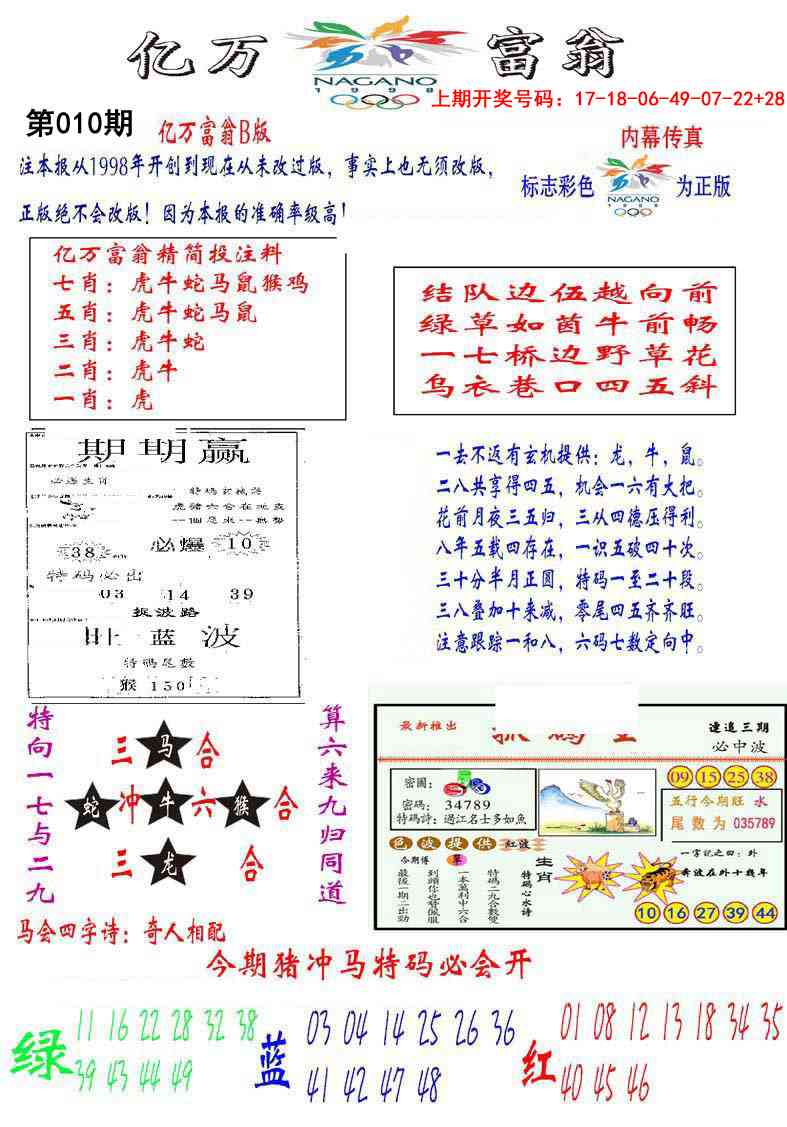 亿万富翁
NAGANO
1998
上期开奖号码：17-18-06-49-07-22+28
第010期
亿万富翁B版
内幕传真
注本报从1998年开创到现在从未改过版，事实上也无须改版，
正版绝不会改版！因为本报的准确率级高！
标志彩色
NAGANO
1998
为正版
亿万富翁精简投注料
七肖：虎牛蛇马鼠猴鸡
五肖：虎牛蛇马鼠
三肖：虎牛蛇
二肖：虎牛
一肖：虎
结队边伍越向前
绿草如茵牛前畅
一七桥边野草花
乌衣巷口四五斜
期期赢
必爆
38
10
特码必出
03 14 39
捉波路
旺蓝波
特码尾数
猴150
一去不返有玄机提供：龙，牛，鼠。
二八共享得四五，机会一六有大把。
花前月夜三五归，三从四德压得利。
八年五载四存在，一识五破四十次。
三十分半月正圆，特码一至二十段。
三八叠加十来减，零尾四五齐齐旺。
注意跟踪一和八，六码七数定向中。
特向一七与二九
三马合
蛇冲牛六猴合
三龙合
算六来九归同道
最新推出
连追三期
必中波
09 15 25 38
密圖：
密碼：34789
特碼詩：過江名士多如魚
五行今期旺 水
尾数为 035789
色波提供 红波
今期傳
草
特碼二九合數雙
一本萬利中六合
到頭你也尊佩服
最後一期二出勁
生肖
特碼心水诗
一字记之曰：外
奔波在外十幾年
10 16 27 39 44
马会四字诗：奇人相配
今期猪冲马特码必会开
绿
11 16 22 28 32 38
39 43 44 49
蓝
03 04 14 25 26 36
41 42 47 48
红
01 08 12 13 18 34 35
40 45 46